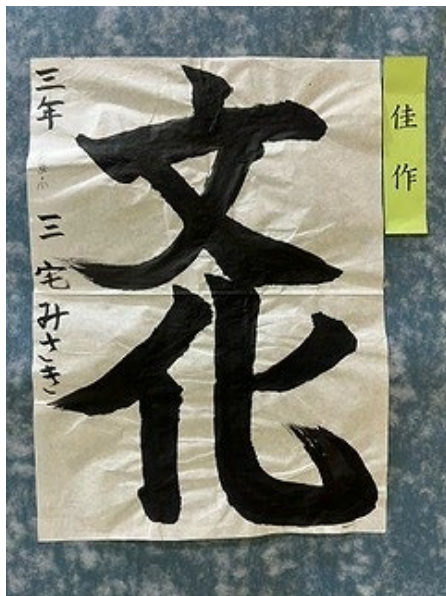 佳作
文化
三年 三宅みさき